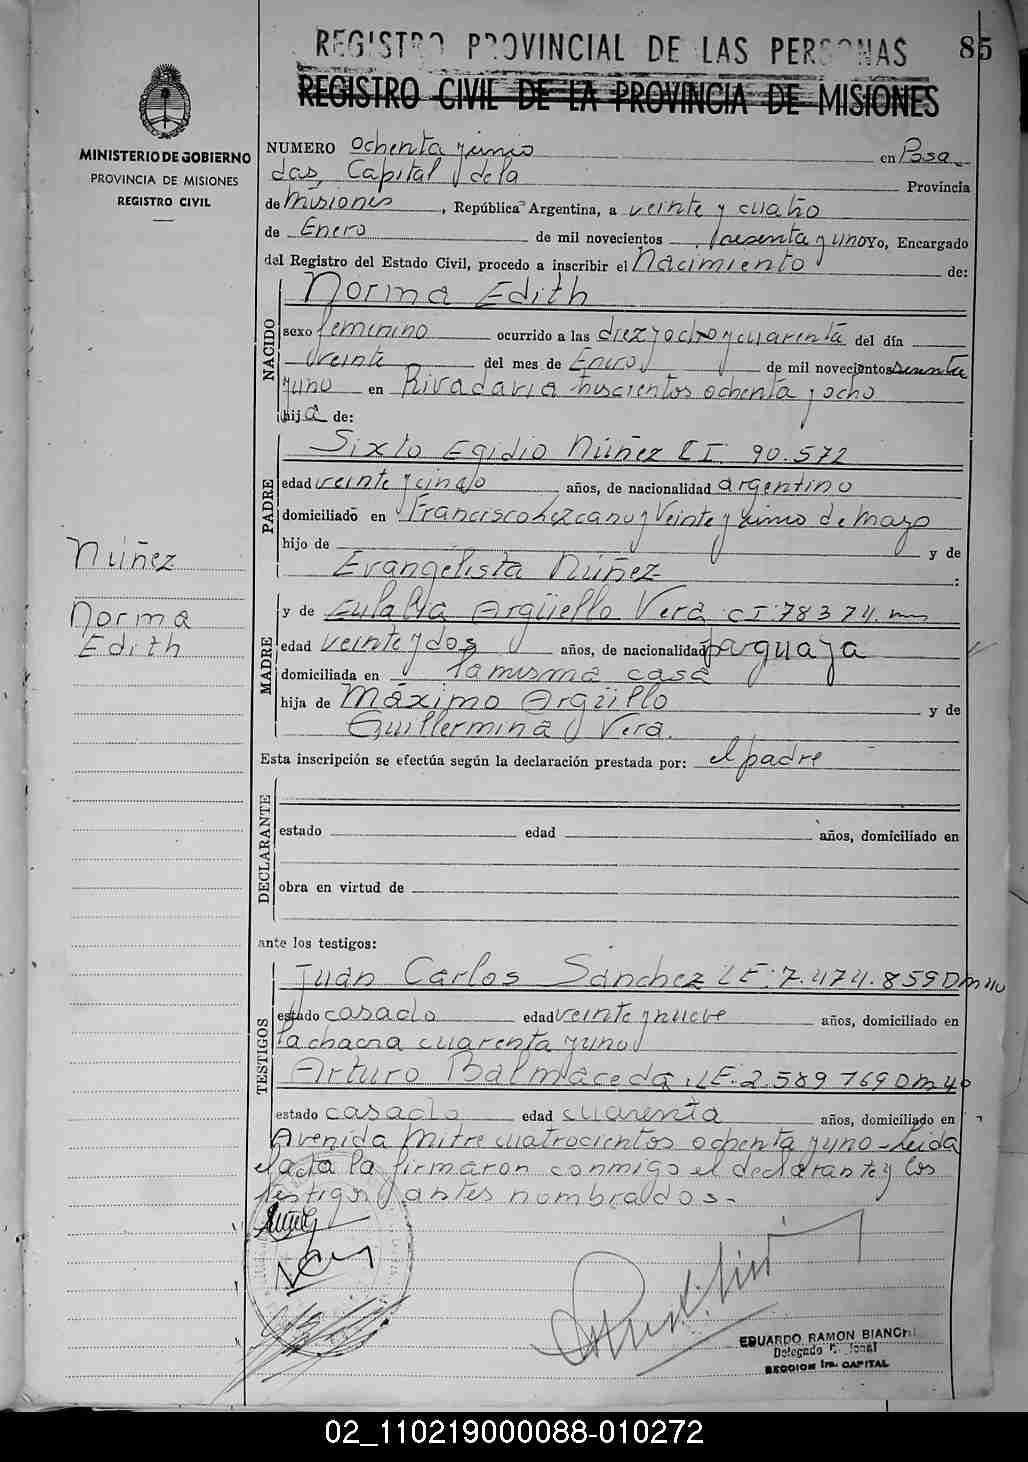 REGISTRO PROVINCIAL DE LAS PERSONAS
85
REGISTRO CIVIL DE LA PROVINCIA DE MISIONES
MINISTERIO DE GOBIERNO
PROVINCIA DE MISIONES
REGISTRO CIVIL
NUMERO ochenta y uno en Posa-
das, Capital de la Provincia
de Misiones, República Argentina, a veinte y cuatro
de Enero de mil novecientos sesenta y uno Yo, Encargado
del Registro del Estado Civil, procedo a inscribir el Nacimiento de:
NACIDO
Norma Edith
sexo femenino ocurrido a las diez y ocho y cuarenta del día
veinte del mes de Enero de mil novecientos sesenta
y uno en Rivadavia trescientos ochenta y ocho
hija de:
PADRE
Sixto Egidio Núñez C I. 90.572
edad veinte y cinco años, de nacionalidad argentino
domiciliado en Francisco Lezcano y Veinte y cinco de Mayo
hijo de y de
Evangelista Núñez :
Núñez
Norma
Edith
MADRE
y de Eulalia Argüello Vera CI 78374.
edad veinte y dos años, de nacionalidad paraguaya
domiciliada en la misma casa
hija de Máximo Argüello y de
Guillermina Vera.
Esta inscripción se efectúa según la declaración prestada por: el padre
DECLARANTE
estado edad años, domiciliado en
obra en virtud de
ante los testigos:
TESTIGOS
Juan Carlos Sánchez L E: 7.474.859 DM 40
estado casado edad veinte y nueve años, domiciliado en
la chacra cuarenta y uno
Arturo Balmaceda, LE: 2.589 769 DM 40
estado casado edad cuarenta años, domiciliado en
Avenida Mitre cuatrocientos ochenta y uno - Leida
el acta la firmaron conmigo el declarante y los
testigos antes nombrados.-
Núñez
EDUARDO RAMON BIANCHI
Delegado
SECCION 1ra. CAPITAL
02_110219000088-010272